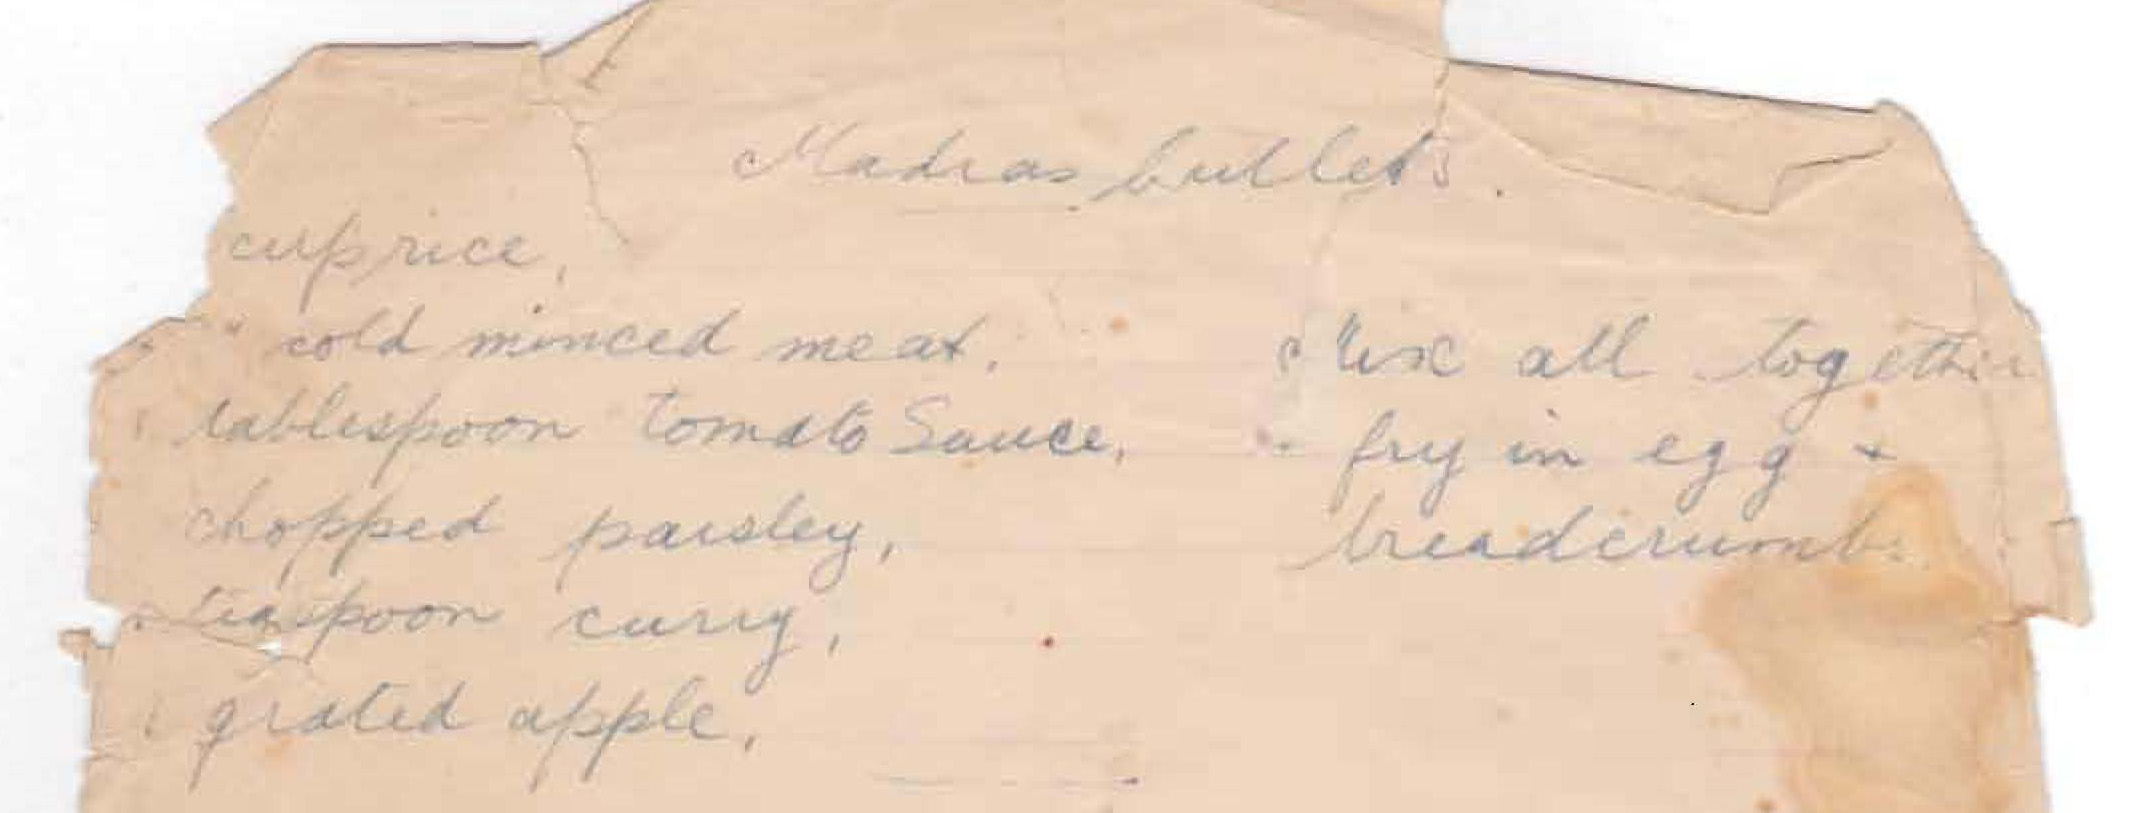 Madras bullets.
cup rice,
" cold minced meat.
1 tablespoon tomato Sauce,
chopped parsley,
teaspoon curry,
1 grated apple,
Mix all together
+ fry in egg +
breadcrumbs